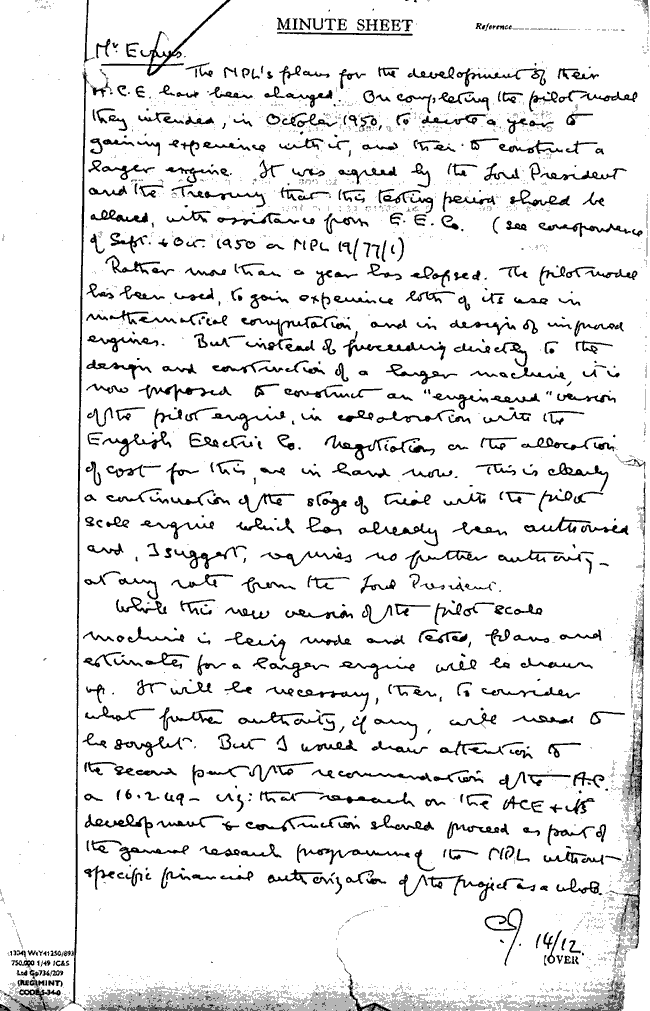 MINUTE SHEET
Reference
Mr Evans.
The NPL's plans for the development of their
A.C.E. have been changed. On completing the pilot model
they intended, in October 1950, to devote a year to
gaining experience with it, and then to construct a
larger engine. It was agreed by the Lord President
and the Treasury that this testing period should be
allowed, with assistance from E.E.Co. (see correspondence
of Sept. & Oct. 1950 on NPL 19/77/1)
Rather more than a year has elapsed. The pilot model
has been used, to gain experience both of its use in
mathematical computation, and in design of improved
engines. But instead of proceeding directly to the
design and construction of a larger machine, it is
now proposed to construct an "engineered" version
of the pilot engine, in collaboration with the
English Electric Co. Negotiations on the allocation
of cost for this, are in hand now. This is clearly
a continuation of the stage of trial with the pilot
scale engine which has already been authorised
and, I suggest, requires no further authority -
at any rate from the Lord President.
While this new version of the pilot scale
machine is being made and tested, plans and
estimates for a larger engine will be drawn
up. It will be necessary, then, to consider
what further authority, if any, will need to
be sought. But I would draw attention to
the second part of the recommendation of the A.C.
on 16.2.49 - viz: that research on the ACE & its
development & construction should proceed as part of
the general research programme of the NPL without
specific financial authorization of the project as a whole.
14/12
(OVER
(1304) Wt Y41250/893
750,000 1/49 JC&S
Ltd Gp736/209
(REGIMINT)
CODE 5-34-0